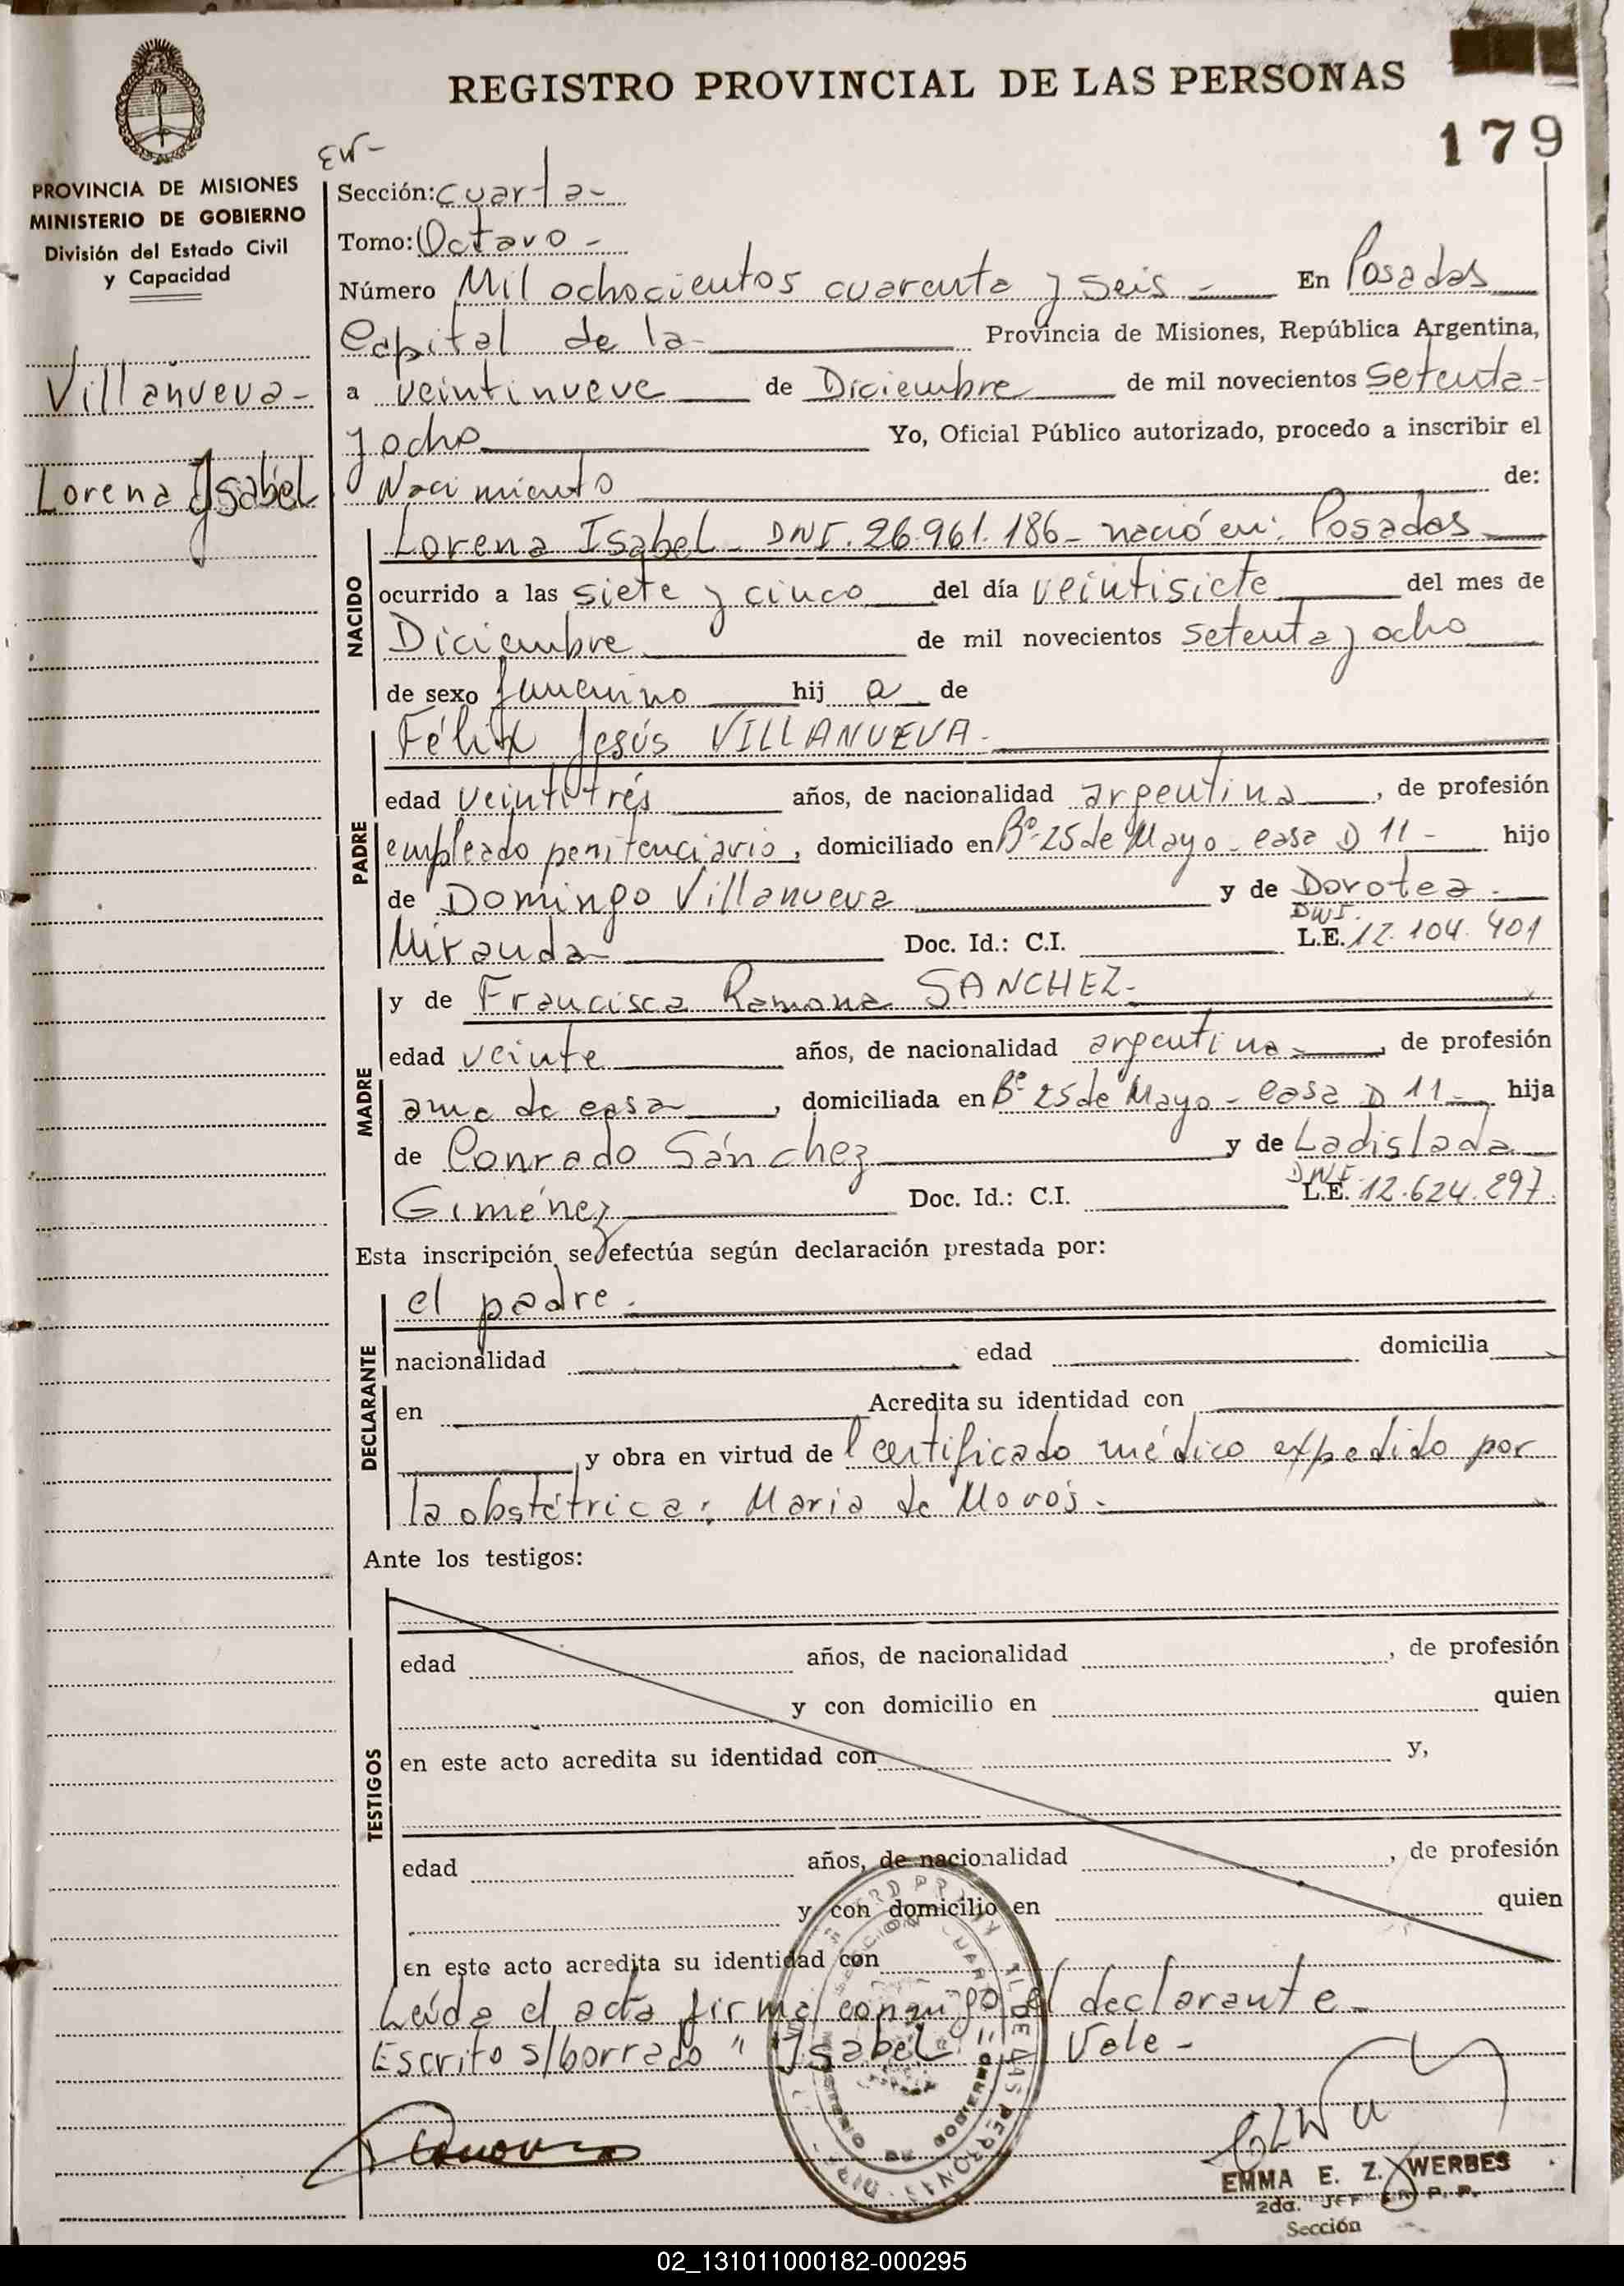 REGISTRO PROVINCIAL DE LAS PERSONAS
179
PROVINCIA DE MISIONES
MINISTERIO DE GOBIERNO
División del Estado Civil
y Capacidad
Villanueva-
Lorena Ysabel
EW-
Sección: cuarta-
Tomo: Octavo-
Número Mil ochocientos cuarenta y seis - En Posadas
Capital de la- Provincia de Misiones, República Argentina,
a veintinueve de Diciembre de mil novecientos setenta-
y ocho Yo, Oficial Público autorizado, procedo a inscribir el
Nacimiento de:
NACIDO
Lorena Isabel- DNI. 26.961.186- nació en: Posadas
ocurrido a las siete y cinco del día veintisiete del mes de
Diciembre de mil novecientos setenta y ocho
de sexo femenino hij a de
PADRE
Félix Jesús VILLANUEVA-
edad veintitrés años, de nacionalidad argentina, de profesión
empleado penitenciario, domiciliado en Bº-25 de Mayo- casa D 11- hijo
de Domingo Villanueva y de Dorotea-
DNI.
Miranda- Doc. Id.: C.I. L.E. 12.104.401
MADRE
y de Francisca Ramona SANCHEZ-
edad veinte años, de nacionalidad argentina-, de profesión
ama de casa, domiciliada en Bº 25 de Mayo- casa D 11- hija
de Conrado Sánchez y de Ladislada
DNI.
Giménez Doc. Id.: C.I. L.E. 12.624.297.
Esta inscripción se efectúa según declaración prestada por:
DECLARANTE
el padre-
nacionalidad edad domicilia
en Acredita su identidad con
y obra en virtud de l certificado médico expedido por
la obstétrica: Maria de
Ante los testigos:
TESTIGOS
edad años, de nacionalidad , de profesión
y con domicilio en quien
en este acto acredita su identidad con y,
edad años, de nacionalidad , de profesión
y con domicilio en quien
en este acto acredita su identidad con
Leída el acta firma conmigo el declarante-
Escrito s/borrado "Ysabel" Vale-
EMMA E. Z. WERBES
2da. JEF
Sección
02_131011000182-000295